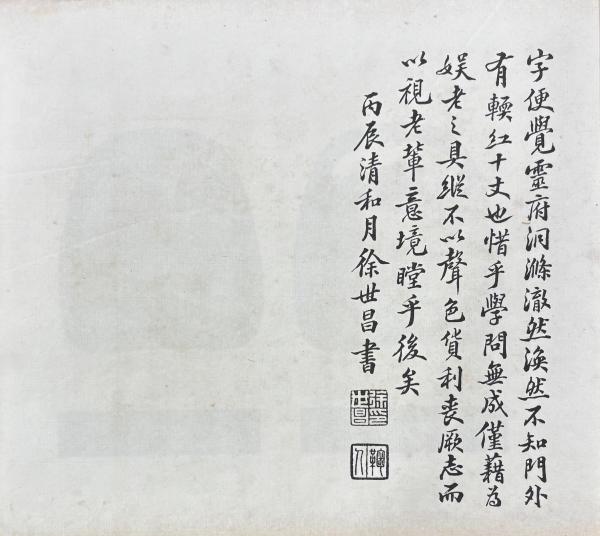 字便覺靈府洞滌澈然渙然不知門外
有輭紅十丈也惜乎學問無成僅藉為
娛老之具縱不以聲色貨利喪厥志而
以視老輩意境瞠乎後矣
丙辰清和月徐世昌書
徐印世昌
鞠人